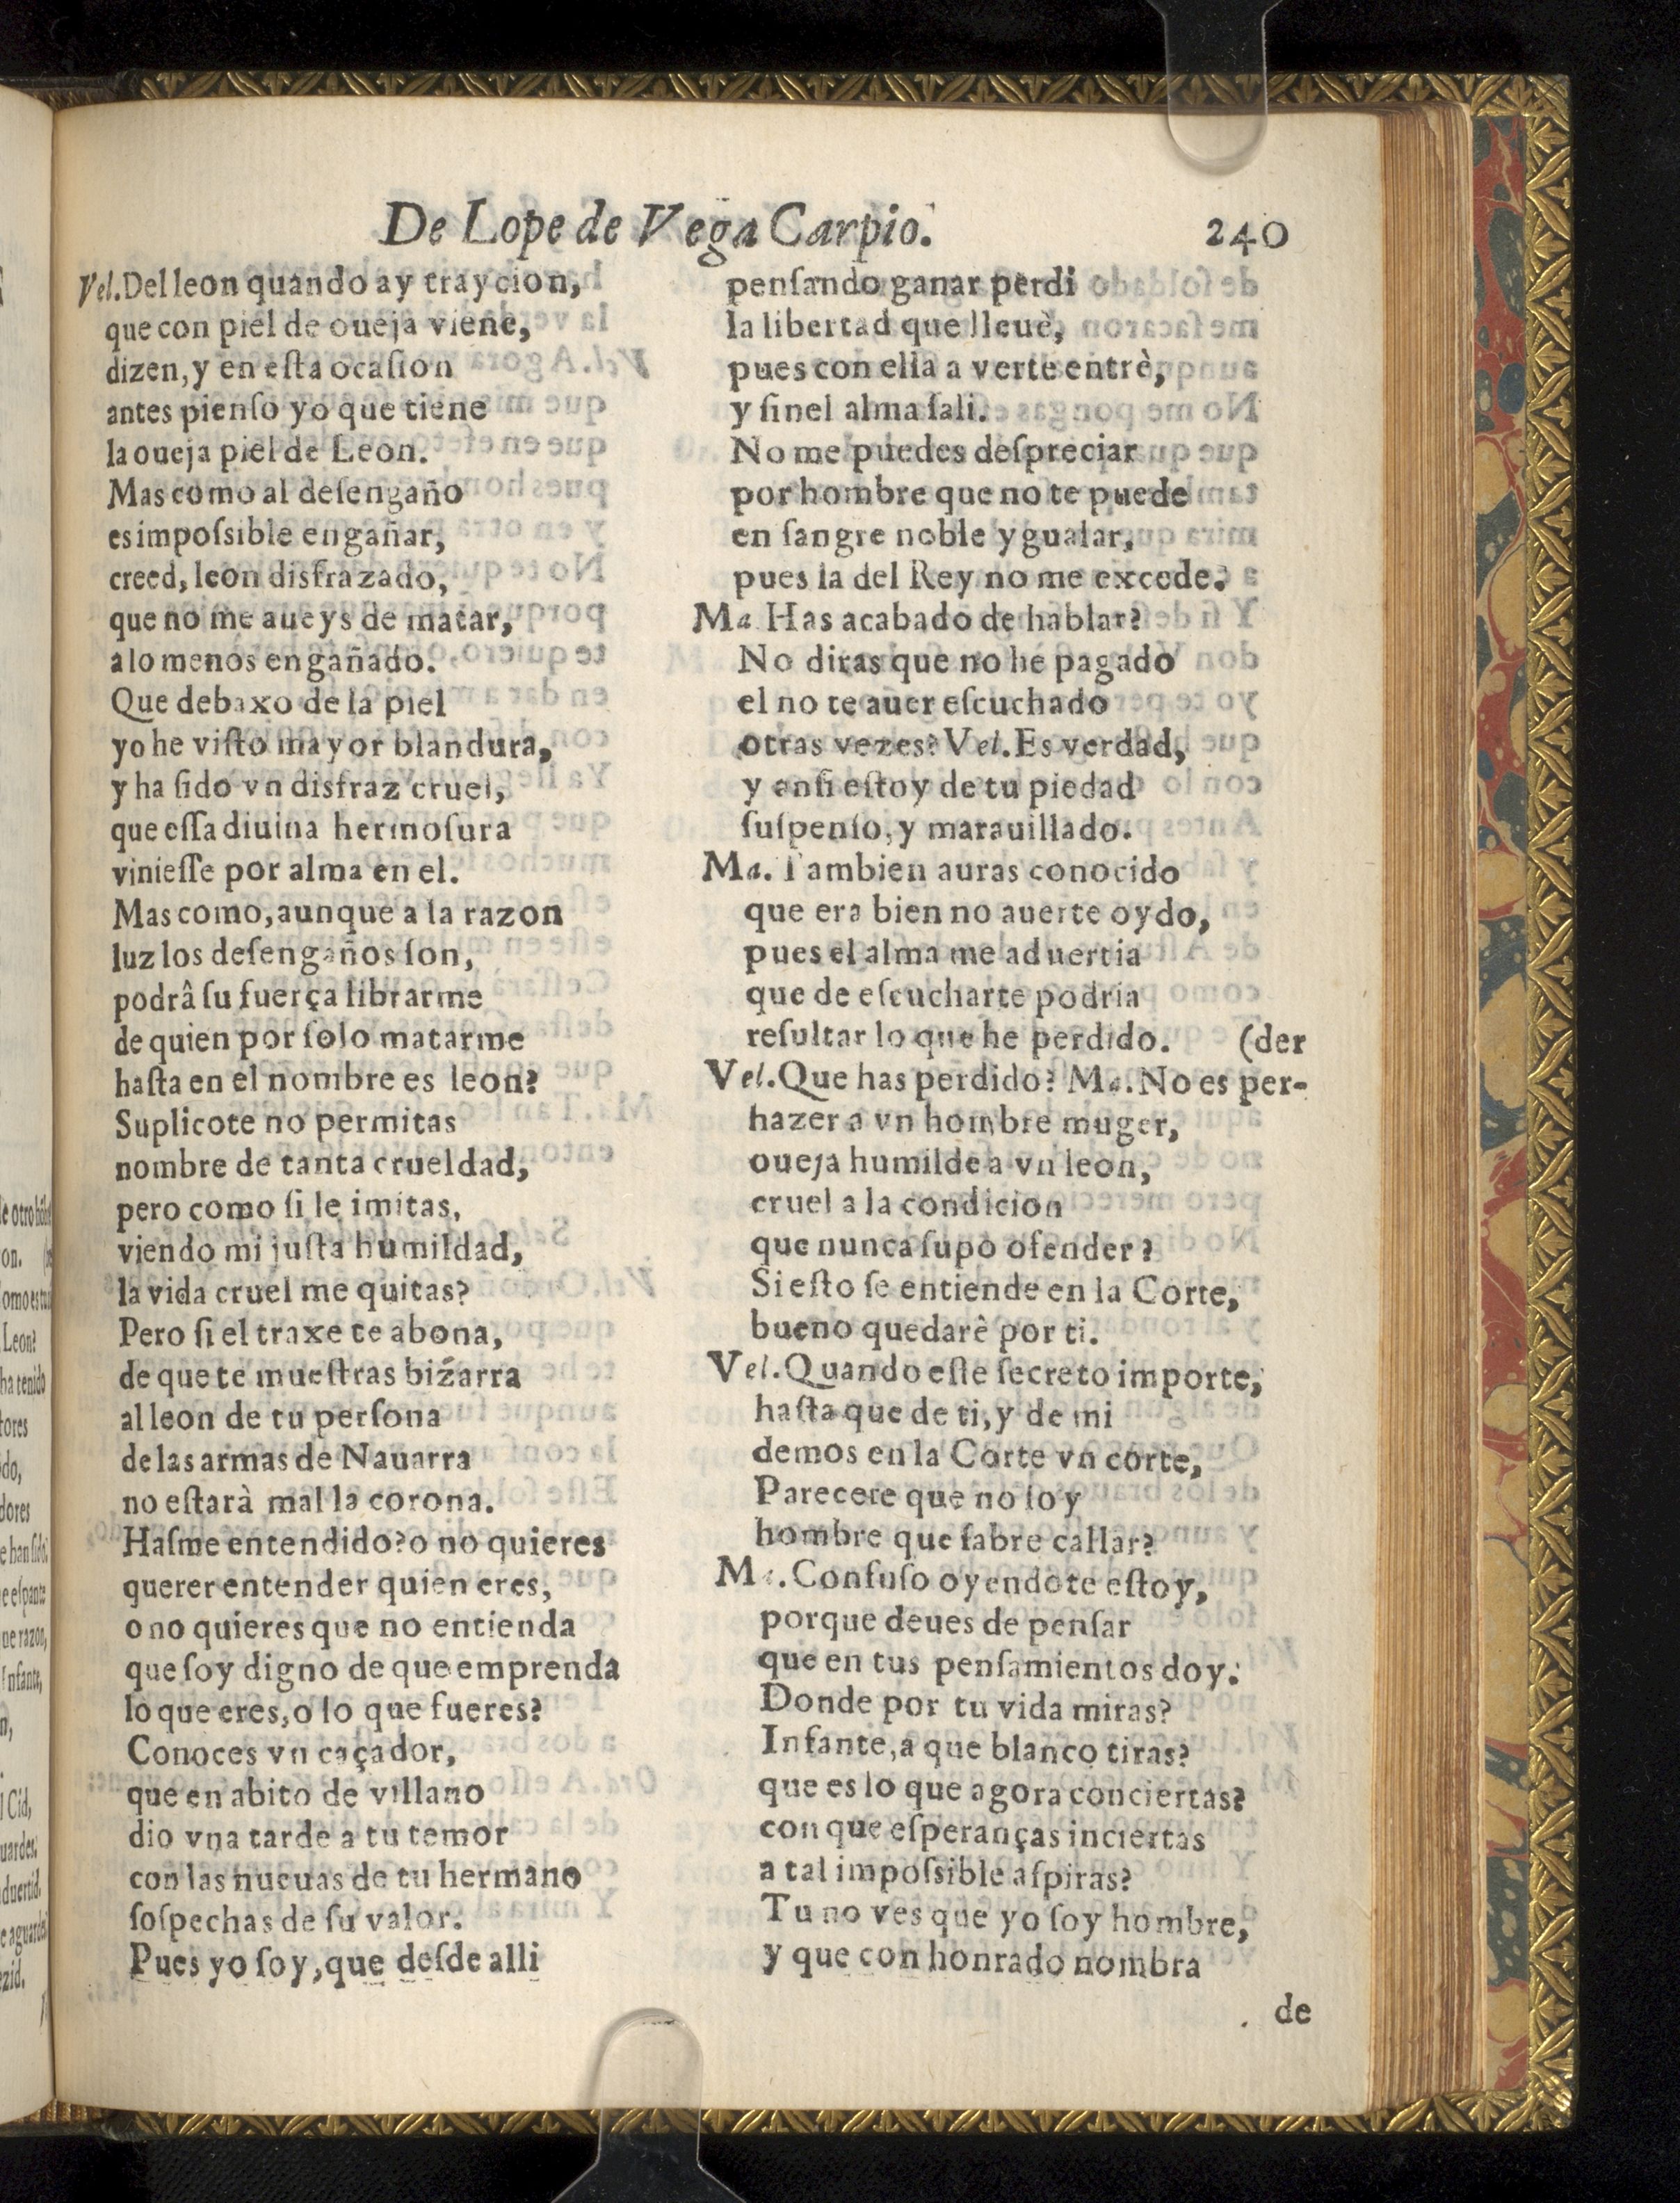 De Lope de Vega Carpio. 240
Vel. Del leon quando ay traycion,
que con piel de oueja viene,
dizen, y en eſta ocaſion
antes pienſo yo que tiene
la oueja piel de Leon.
Mas como al deſengaño
es impoſsible engañar,
creed, leon disfrazado,
que no me aueys de matar,
alomenos engañado.
Que debaxo de la piel
yo he viſto mayor blandura,
y ha ſido vn disfraz cruel,
que eſſa diuina hermoſura
vinieſſe por alma en el.
Mas como, aunque a la razon
luz los deſengaños ſon,
podrâ ſu fuerça librarme
de quien por ſolo matarme
haſta en el nombre es leon?
Suplicote no permitas
nombre de tanta crueldad,
pero como ſi le imitas,
viendo mi juſta humildad,
la vida cruel me quitas?
Pero ſi el traxe te abona,
de que te mueſtras bizarra
al leon de tu perſona
de las armas de Nauarra
no eſtarà mal la corona.
Haſme entendido? o no quieres
querer entender quien eres,
o no quieres que no entienda
que ſoy digno de que emprenda
lo que eres, o lo que fueres?
Conoces vn caçador,
que en abito de villano
dio vna tarde a tu temor
con las nueuas de tu hermano
ſoſpechas de ſu valor.
Pues yo ſoy, que deſde alli
penſando ganar perdi
la libertad que lleuè,
pues con ella a verte entrè,
y ſinel alma ſali.
No me puedes deſpreciar
por hombre que no te puede
en ſangre noble ygualar,
pues la del Rey no me excede.
Ma. Has acabado de hablar?
No diras que no he pagado
el no te auer eſcuchado
otras vezes? Vel. Es verdad,
y anſi eſtoy de tu piedad
ſuſpenſo, y marauillado.
Ma. Tambien auras conocido
que era bien no auerte oydo,
pues el alma me aduertia
que de eſcucharte podria
reſultar lo que he perdido. (der
Vel. Que has perdido? Ma. No es per-
hazer a vn hombre muger,
oueja humilde a vn leon,
cruel a la condicion
que nunca ſupo ofender?
Si eſto ſe entiende en la Corte,
bueno quedarè por ti.
Vel. Quando eſte ſecreto importe,
haſta que de ti, y de mi
demos en la Corte vn corte,
Parecete que no ſoy
hombre que ſabre callar?
Ma. Confuſo oyendote eſtoy,
porque deues de penſar
que en tus penſamientos doy.
Donde por tu vida miras?
Infante, a que blanco tiras?
que es lo que agora conciertas?
con que eſperanças inciertas
a tal impoſsible aſpiras?
Tu no ves que yo ſoy hombre,
y que con honrado nombra
de